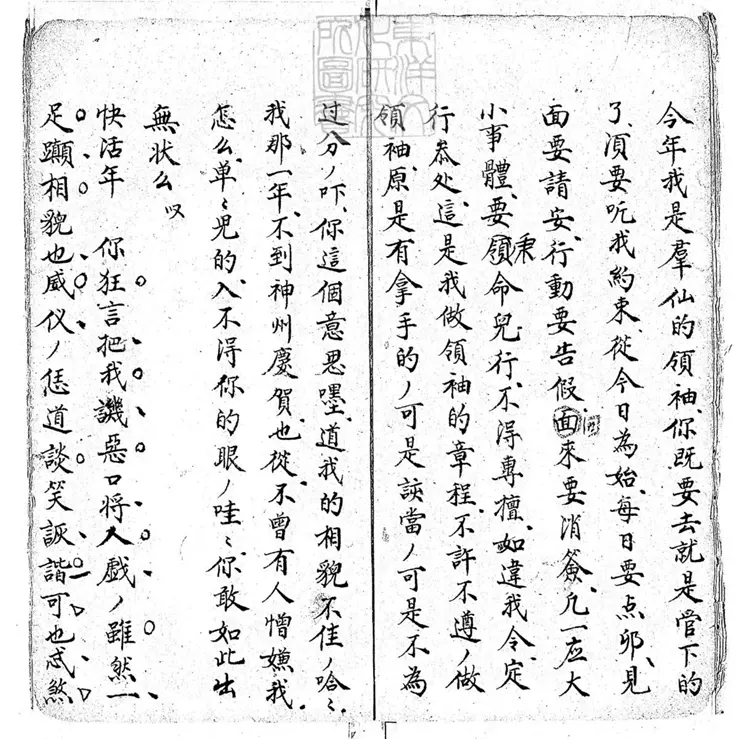 今年我是羣仙的領袖、你既要去就是管下的
了、湏要听我約束、從今日為始、每日要点卯、見
面要請安、行動要告假、面回來要消簽、凡一应大
小事體、要領秉命兒行、不淂専擅、如違我令、定
行叅处、這是我做領袖的章程、不許不遵ノ做
領袖、原是有拿手的ノ可是該當ノ可是不為
过分ノ吓、你這個意思嚜、道我的相貌不佳ノ哈〻、
我那一年、不到神州慶賀、也從不曾有人憎嫌我、
怎么、单〻兒的、入不淂你的眼ノ哇〻、你敢如此出
無状么 又
快活年 你狂言把我譏惡口将人戲ノ雖然一
足躑相貌也威仪ノ恁道談笑詼諧可也忒煞
東洋文化研究所圖書